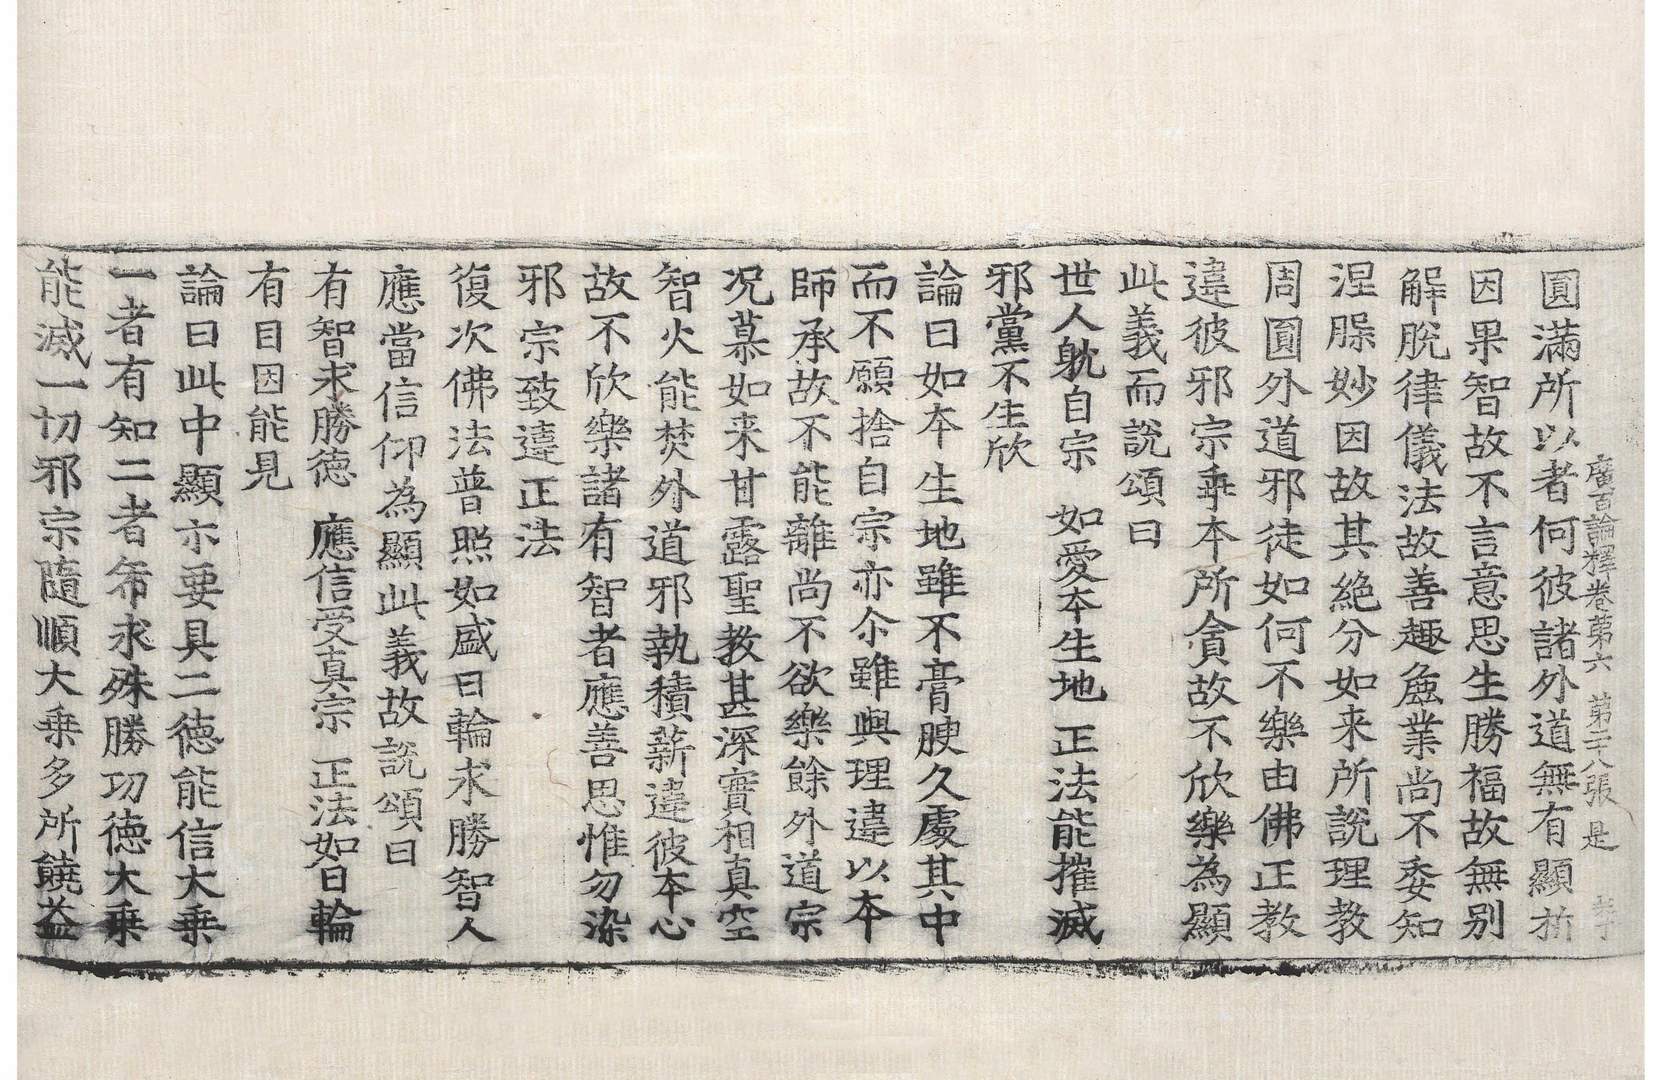 圓滿所以者何彼諸外道無有顯折
廣百論釋卷第六 第二十八張 是
因果智故不言意思生勝福故無別
解脫律儀法故善趣麁業尚不委知
涅槃妙因故其絕分如来所說理教
周圓外道邪徒如何不樂由佛正教
違彼邪宗乖本所貪故不欣樂為顯
此義而說頌曰
世人躭自宗 如愛本生地 正法能摧滅
邪黨不生欣
論曰如本生地雖不膏腴久處其中
而不願捨自宗亦尒雖與理違以本
師承故不能離尚不欲樂餘外道宗
况慕如来甘露聖教甚深實相真空
智火能焚外道邪執積薪違彼本心
故不欣樂諸有智者應善思惟勿染
邪宗致違正法
復次佛法普照如盛日輪求勝智人
應當信仰為顯此義故說頌曰
有智求勝德 應信受真宗 正法如日輪
有目因能見
論曰此中顯示要具二德能信大乗
一者有知二者希求殊勝功德大乗
能滅一切邪宗隨順大乗多所饒益